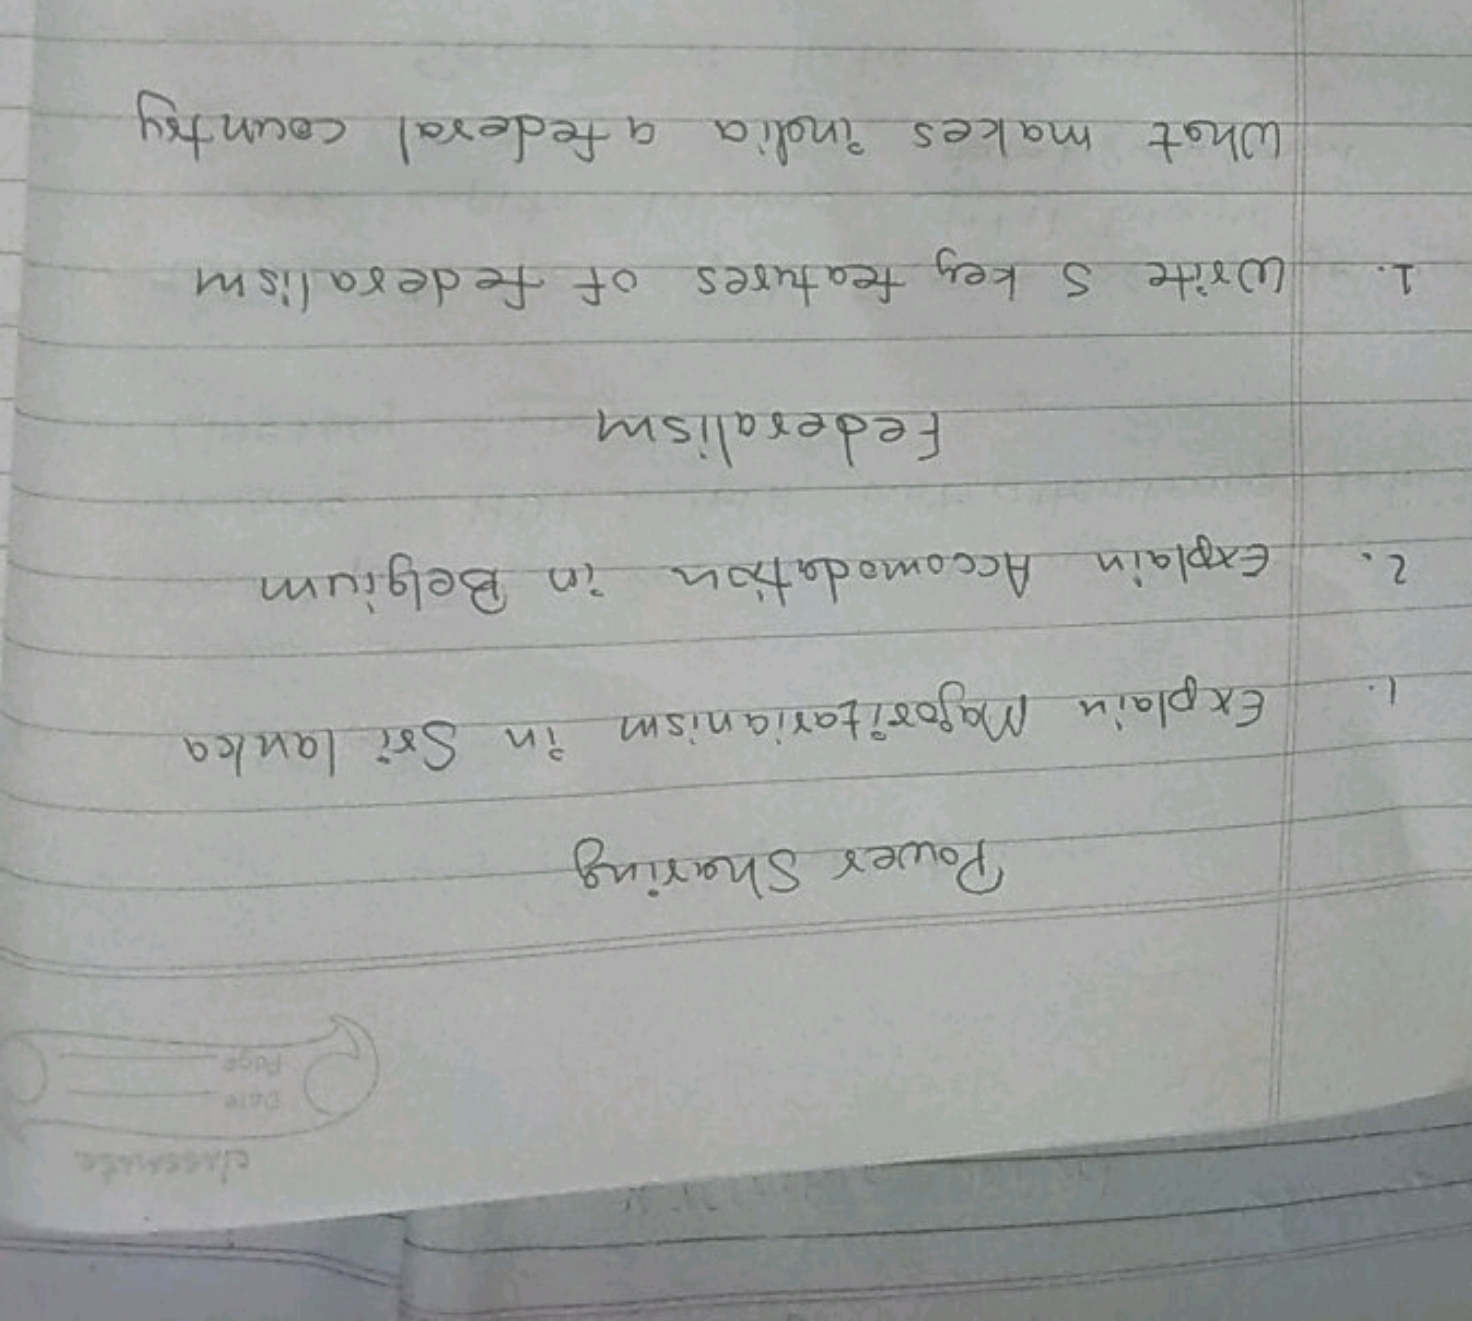 classmate
Date
Page
Power Sharing
1. Explain Majoritarianism in Sri lanka
2. Explain Accomodation in Belgium
Federalism
1. Write 5 key features of federalism
What makes india a federal country